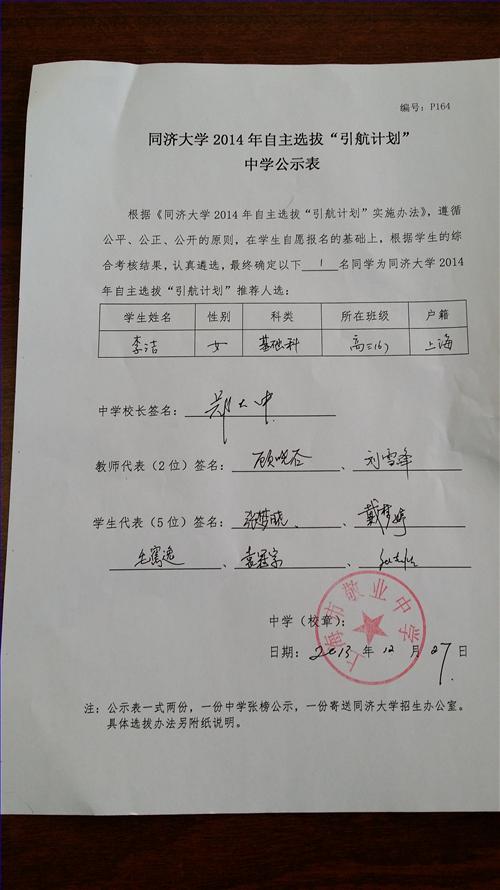 编号：P164
同济大学 2014 年自主选拔“引航计划”
中学公示表
根据《同济大学 2014 年自主选拔“引航计划”实施办法》，遵循
公平、公正、公开的原则，在学生自愿报名的基础上，根据学生的综
合考核结果，认真遴选，最终确定以下 1 名同学为同济大学 2014
年自主选拔“引航计划”推荐人选：
学生姓名 性别 科类 所在班级 户籍
李洁 女 基础科 高三(6) 上海
中学校长签名：郑大中
教师代表（2 位）签名： 、刘雪峰
学生代表（5 位）签名：张梦晓、戴梦婷
、 、
中学（校章）：
上海市敬业中学
日期：2013 年 12 月 27 日
注：公示表一式两份，一份中学张榜公示，一份寄送同济大学招生办公室。
具体选拔办法另附纸说明。